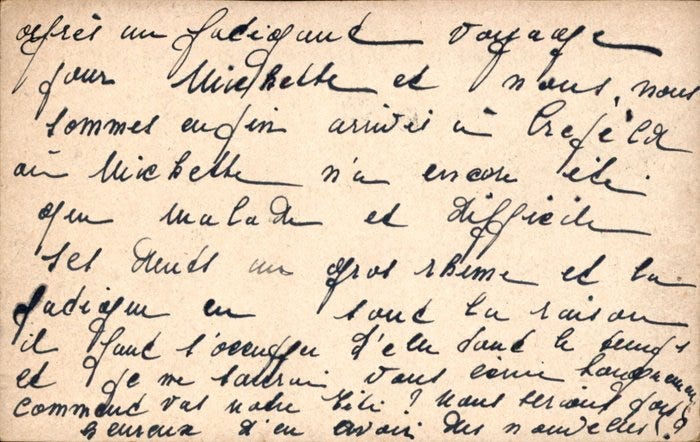 après un fatigant voyage
pour Michette et nous, nous
sommes enfin arrivés à Crefeld
où Michette n'a encore été
que malade et difficile
ses dents un gros rhume et la
fatigue en sont la raison
il faut s'occuper d'elle tout le temps
et je ne saurai vous écrire longuement
comment vas notre Titi ? nous serions
heureux d'en avoir des nouvelles.